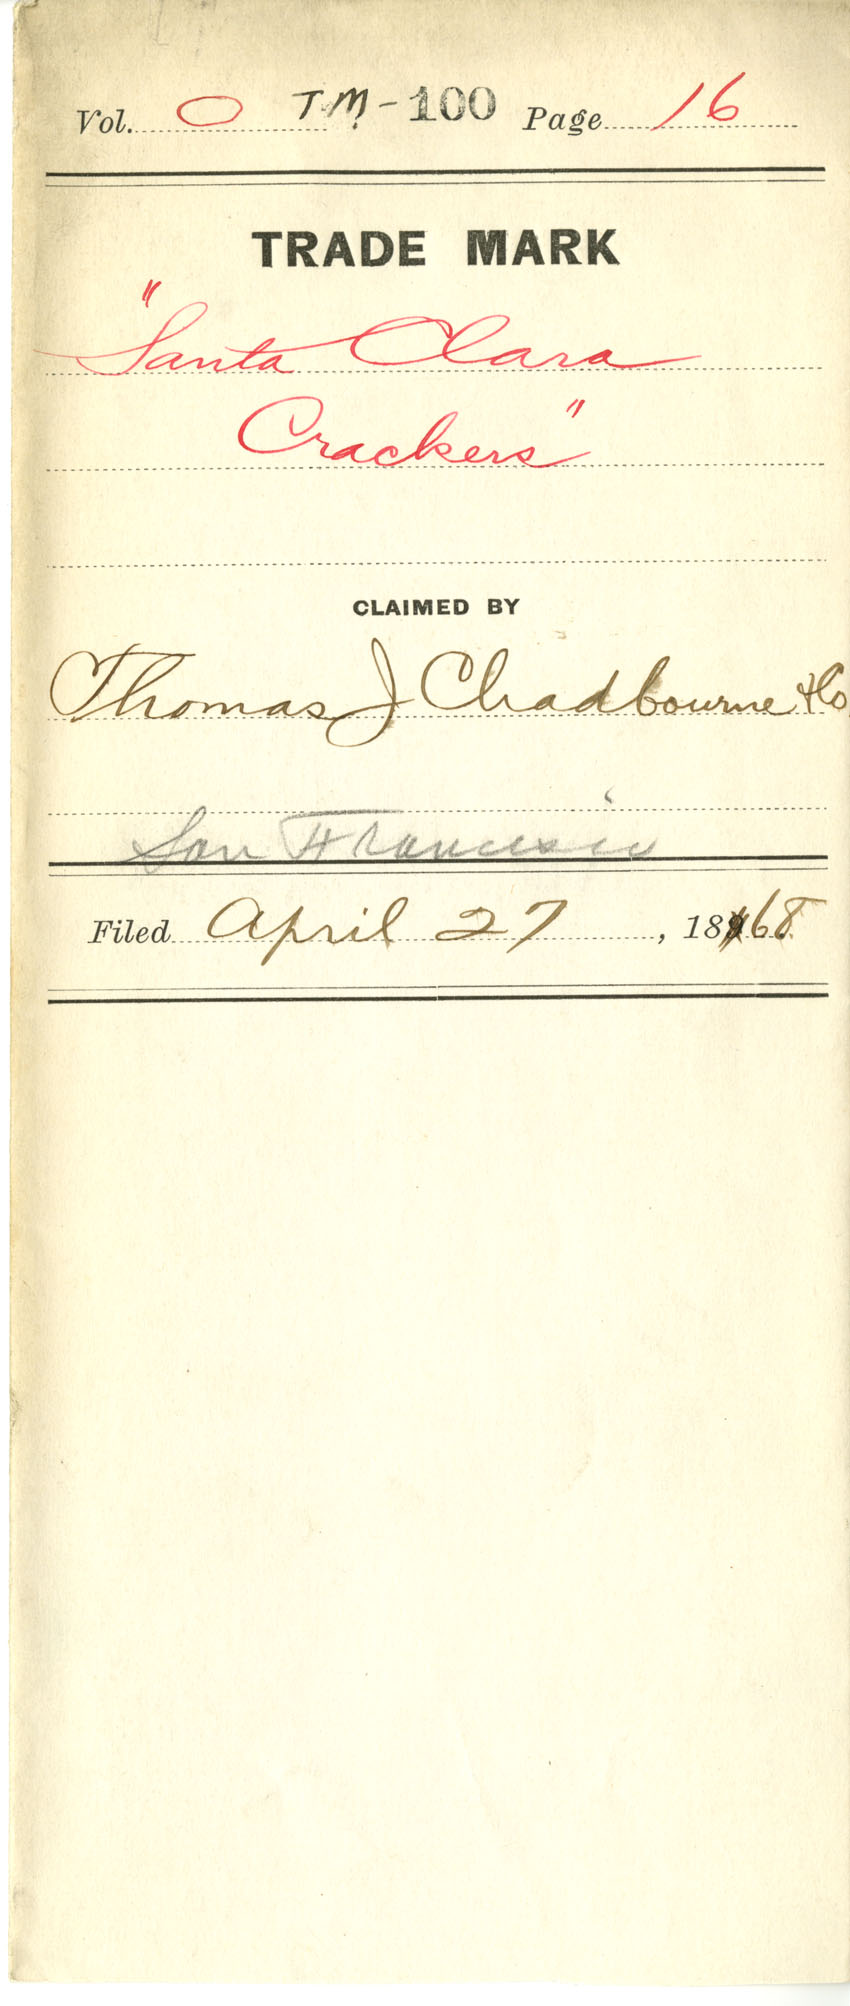 Vol. 0 TM-100 Page 16
TRADE MARK
"Santa Clara
Crackers"
CLAIMED BY
Thomas J Chadbourne & Co
San Francisco
Filed April 27, 1868